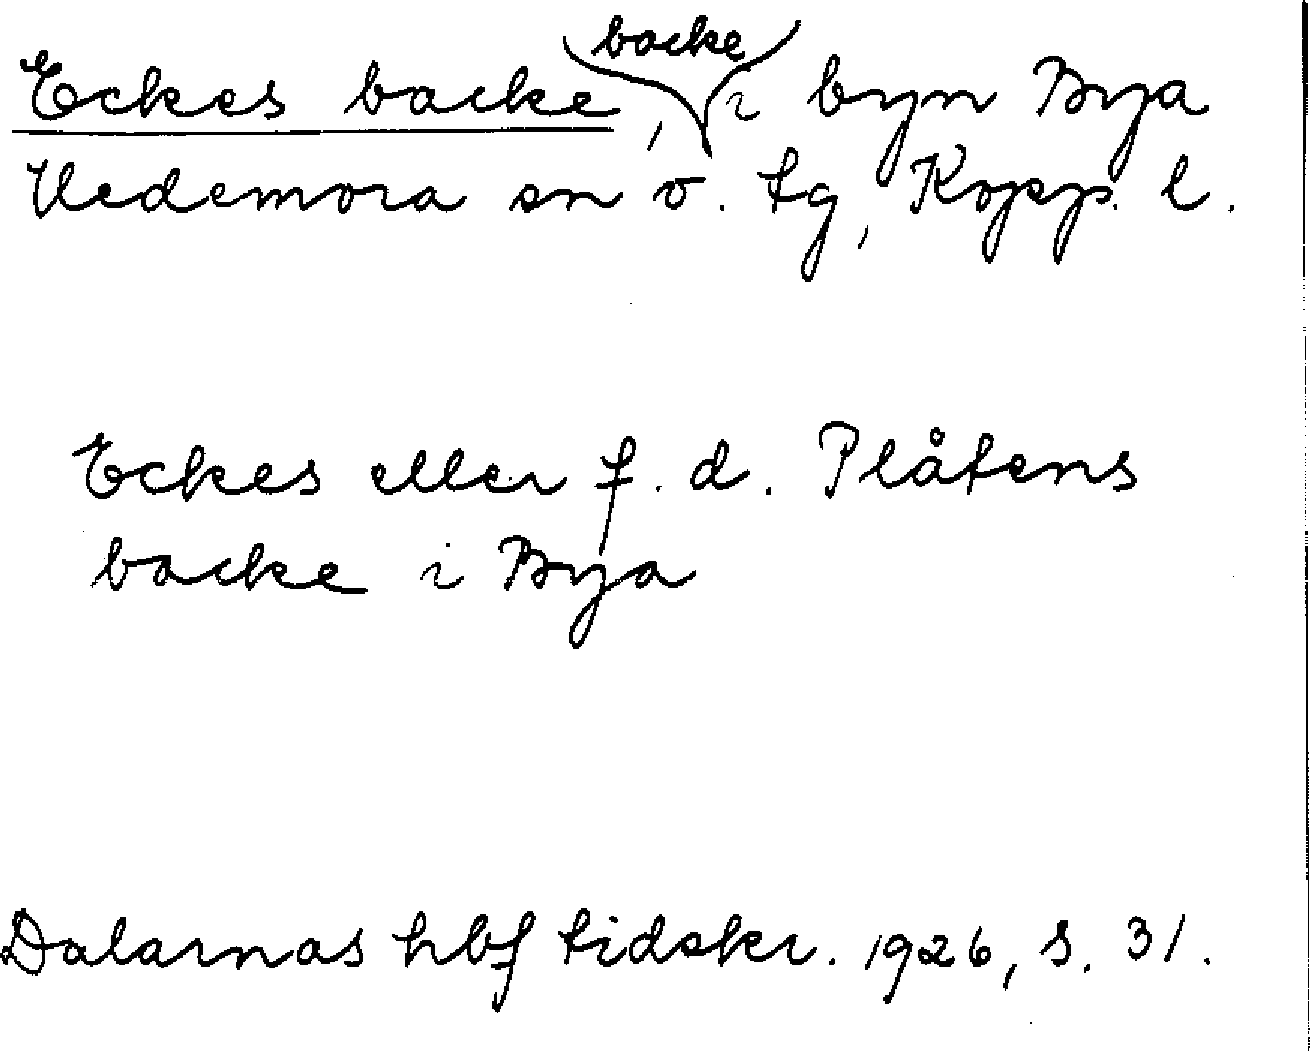 Eckes backe, backe i byn Bya
Hedemora sn o. tg, Kopp. l.
Eckes eller f. d. Plåtens
backe i Bya
Dalarnas hbf tidskr. 1926, s. 31.